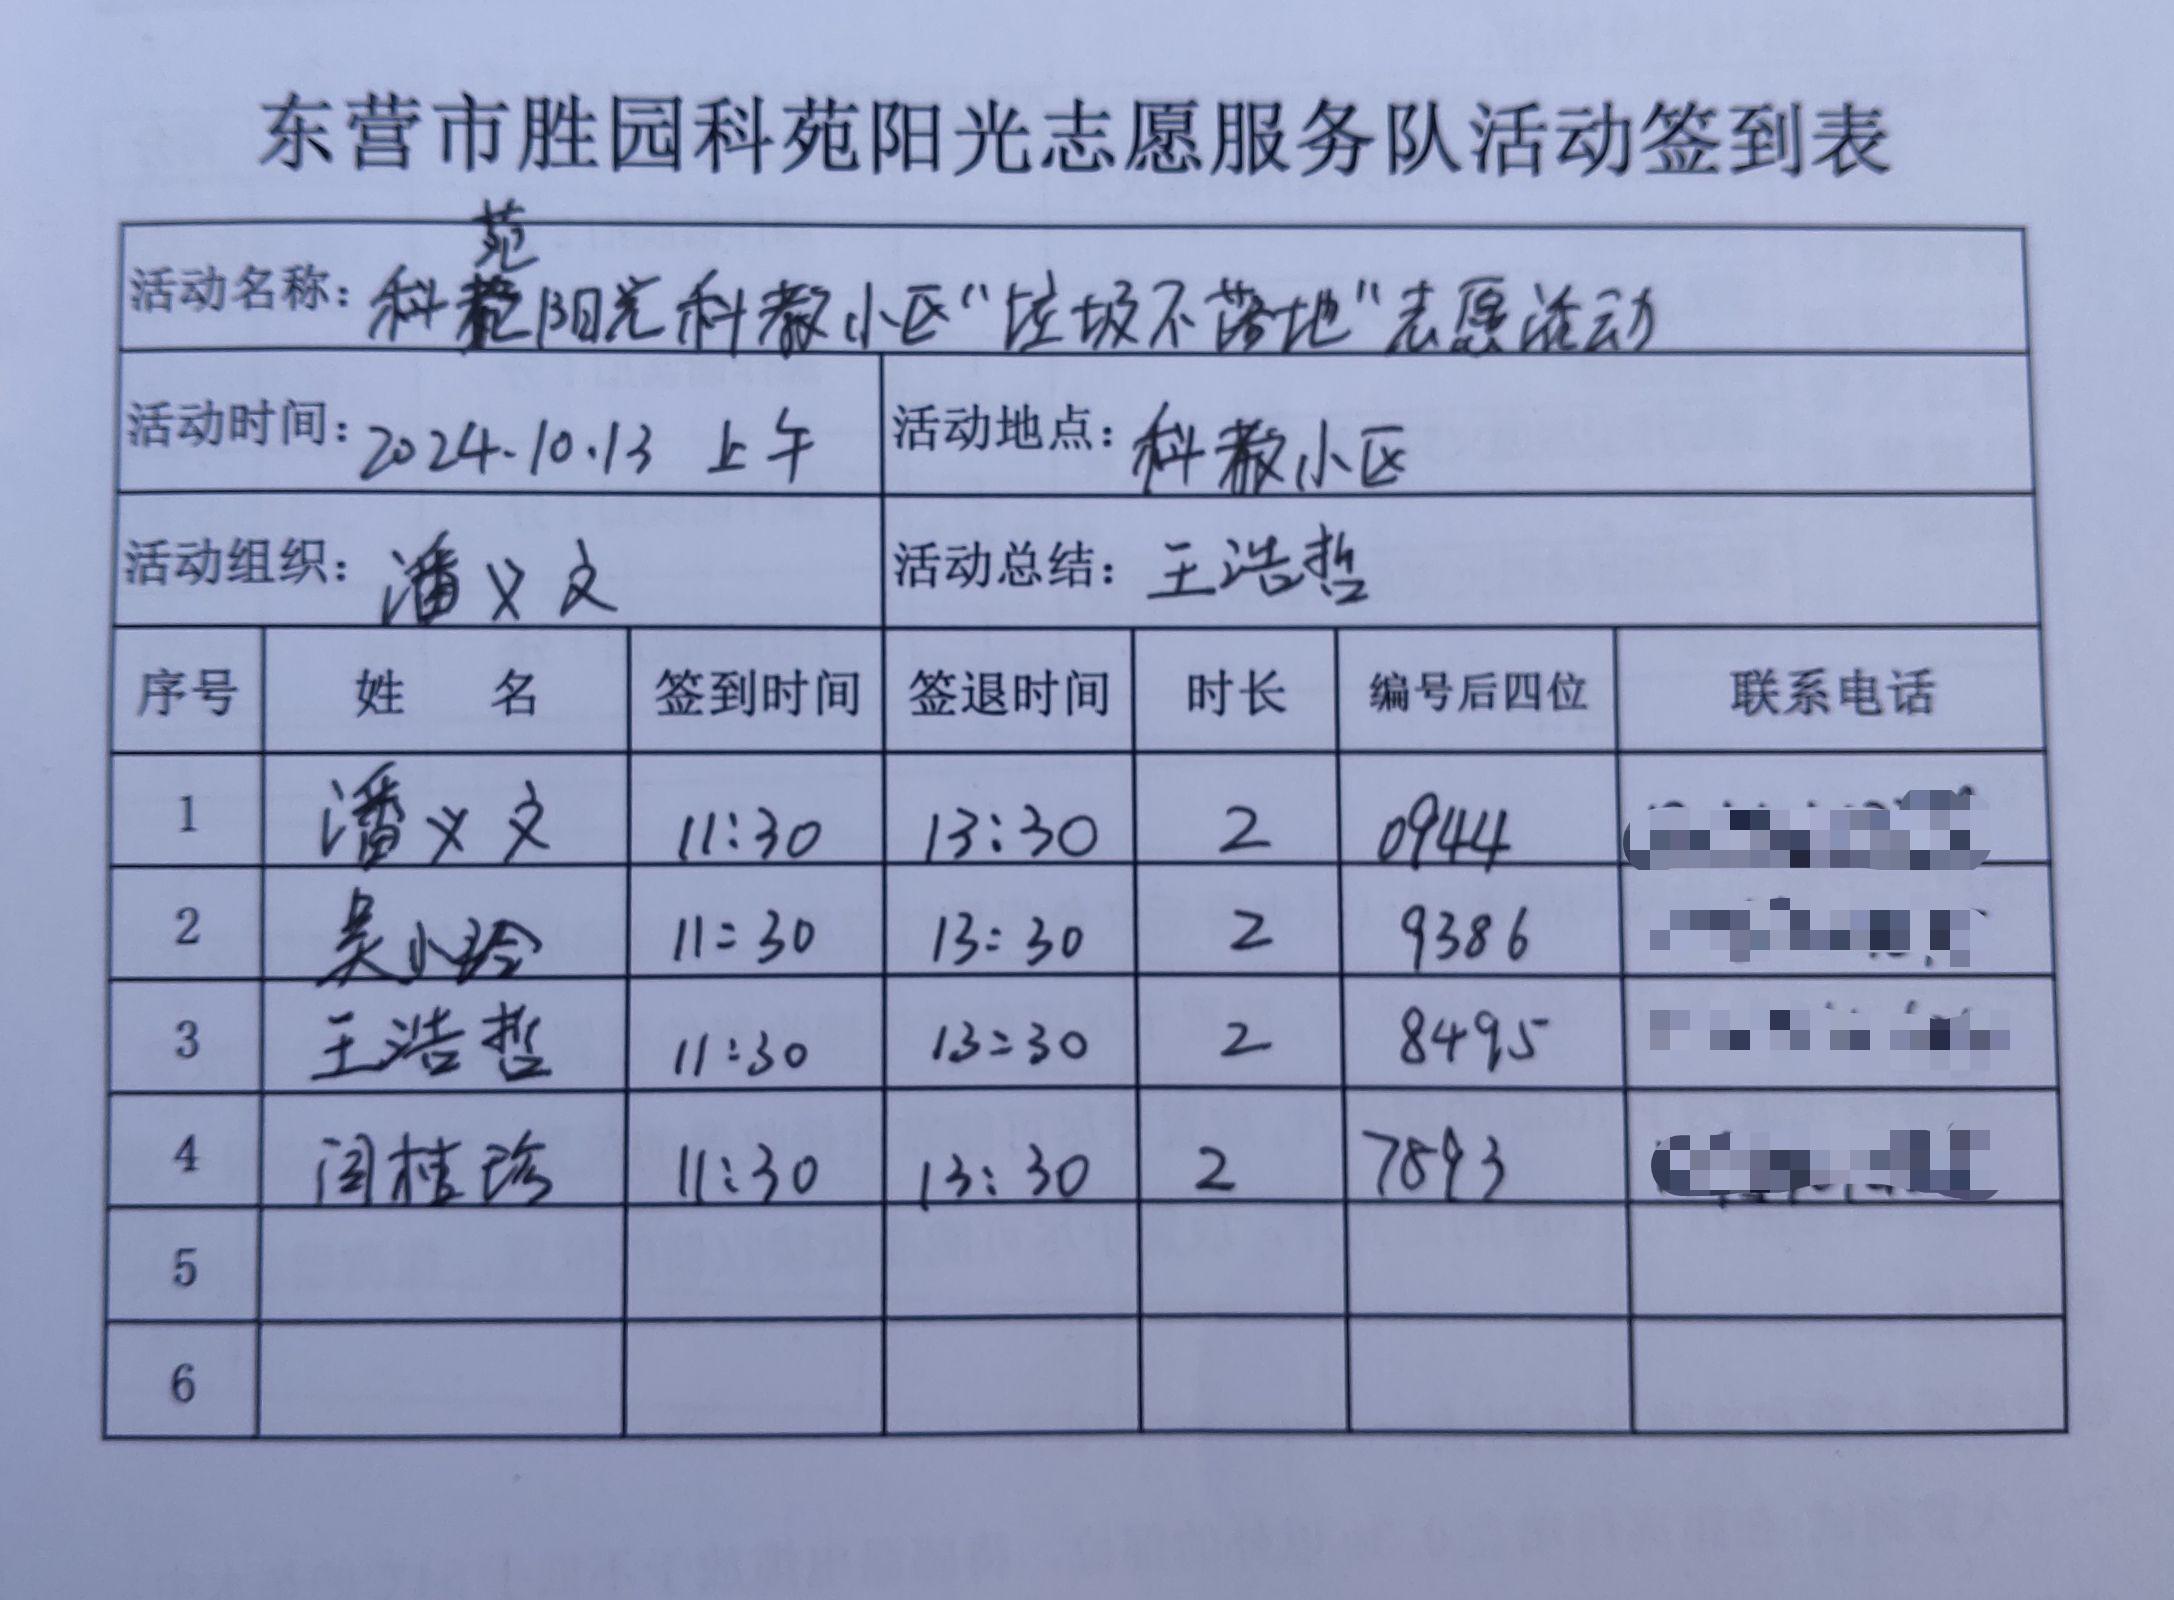 东营市胜园科苑阳光志愿服务队活动签到表
苑
活动名称：科阳光科教小区“垃圾不落地”志愿活动
活动时间：2024.10.13 上午 活动地点：科教小区
活动组织：潘义文 活动总结：王浩哲
序号 姓 名 签到时间 签退时间 时长 编号后四位 联系电话
1 潘义文 11:30 13:30 2 0944
2 吴小玲 11:30 13:30 2 9386
3 王浩哲 11:30 13:30 2 8495
4 闫桂珍 11:30 13:30 2 7893
5
6